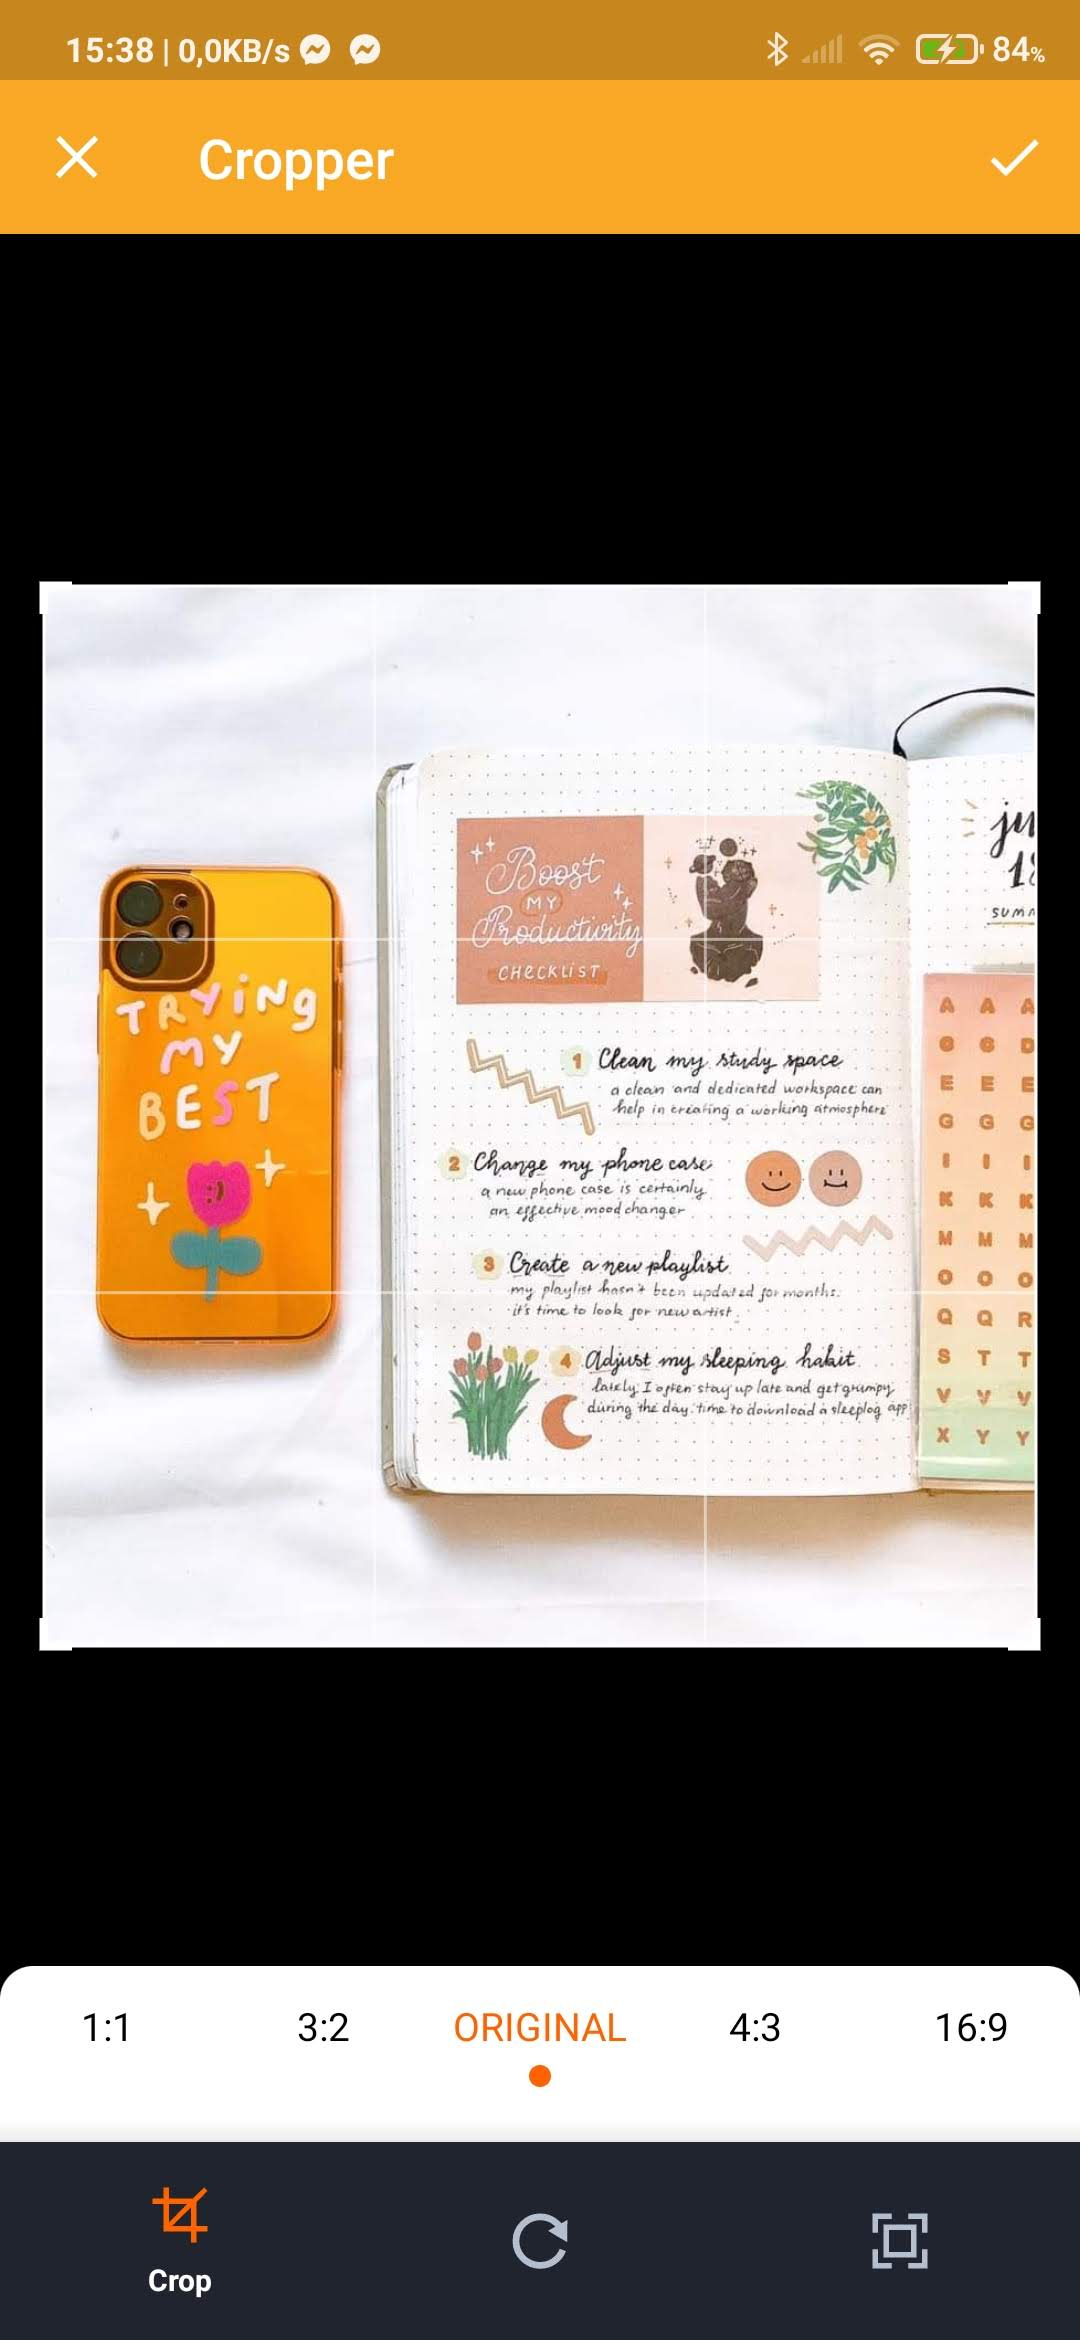 15:38 | 0,0KB/s
84%
Cropper
TRYiNg
MY
BEST
Boost
MY
Productivity
CHeCKLiST
1 Clean my study space
a clean and dedicated workspace can
help in creating a working atmosphere
2 Change my phone case
a new phone case is certainly
an effective mood changer
3 Create a new playlist
my playlist hasn't been updated for months.
it's time to look for new artist.
4 Adjust my sleeping habit
lately I often stay up late and get grumpy
during the day. time to download a sleeplog app
ju
18
SUMM
A A A
E E E
G G G
I I I
K K K
M M M
O O O
Q Q R
S T T
V V V
X Y Y
1:1 3:2 ORIGINAL 4:3 16:9
Crop